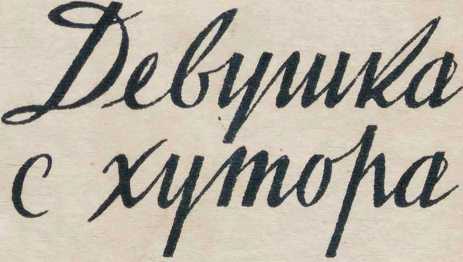 Девушка
с хутора